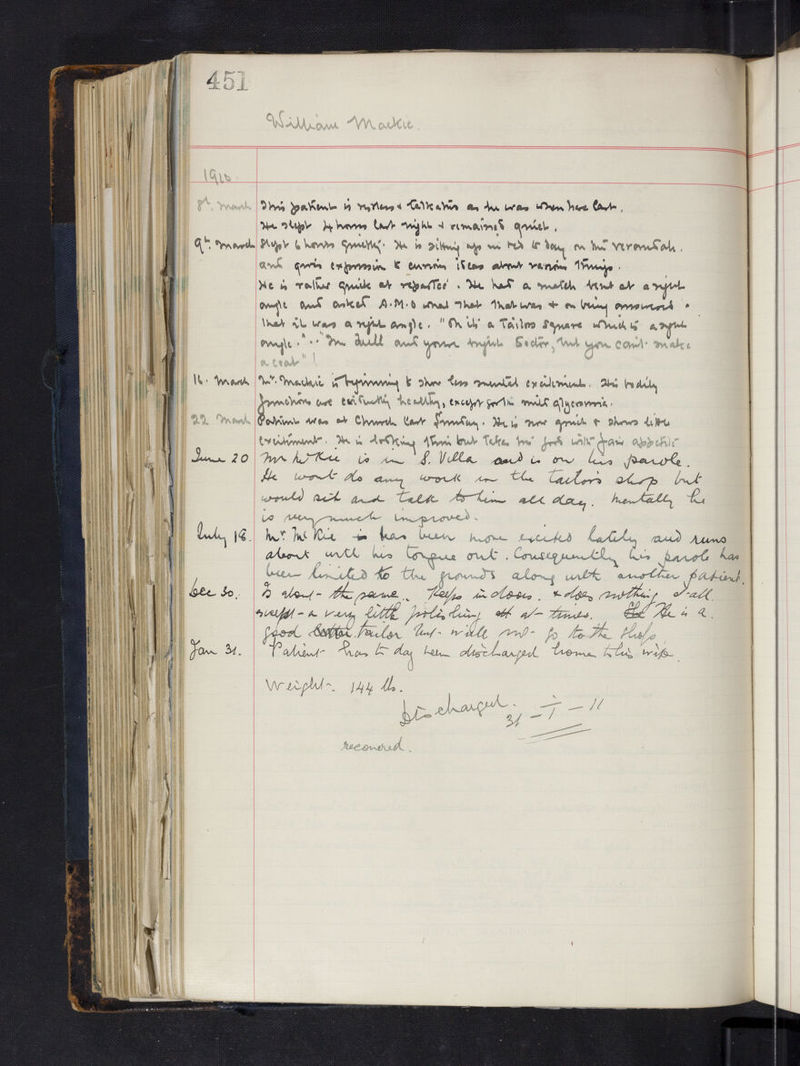 451
William Mackie.
1910.
8th. March This patient is restless & talkative as he was when here last.
He slept 4 hours last night & remained quiet.
9th. March Slept 6 hours quietly. He is sitting up in bed to day on the verandah.
and gives expression to curious ideas about various things.
He is rather quick at repartee. He had a match bent at a right
angle and asked A.M.O what that was & on being answered
that it was a right angle. "Oh it's a Tailors Square which is a right
angle." "I'm dull and you're bright Doctor, but you can't make
a coat"!
16. March Mr. Mackie is beginning to show less mental excitement. His bodily
functions are healthy, except for the mild glycosuria.
22. March Patient was at Church last Sunday. He is now quiet & shows little
excitement. He is looking thin but takes his food with fair appetite
June 20 Mr McKie is in S. Villa and is on his parole.
He wont do any work in the tailor's shop but
would sit and talk to him all day. Mentally he
is very much improved.
July 18. Mr. McKie has been more excited lately and runs
about with his tongue out. Consequently his parole has
been limited to the grounds along with another patient.
Dec 30. Is about the same. Keeps in doors. & does nothing at all
except a very little polishing at times. He is a
good tailor but will not go to the shop.
Jan 31. Patient has to day been discharged home to his wife.
Weight. 144 lbs.
Discharged. 31 - 1 - 11
recovered.